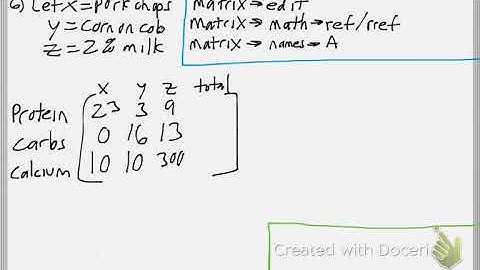 6) Let X = Pork chops
Y = Corn on cob
Z = 2% milk
matrix → edit
matrix → math → ref/rref
matrix → names → A
X Y Z total
Protein 23 3 9
Carbs 0 16 13
Calcium 10 10 300
Created with Doceri